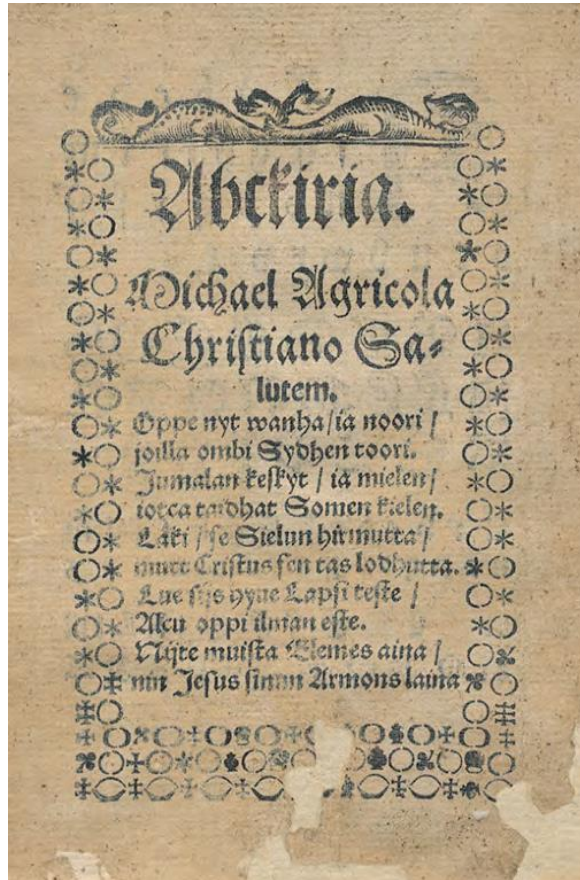 Abckiria.
Michael Agricola
Christiano Sa⸗
lutem.
Oppe nyt wanha/ia noori /
joilla ombi Sydhen toori.
Jumalan keskyt / ia mielen/
iotca taidhat Somen kielen.
Laki / se Sielun hirmutta/
mutt Cristus sen tas lodhutta.
Lue sijs hyue Lapsi teste /
Alcu oppi ilman este.
Nijte muista Elemes aina /
nin Jesus sinun Armons laina